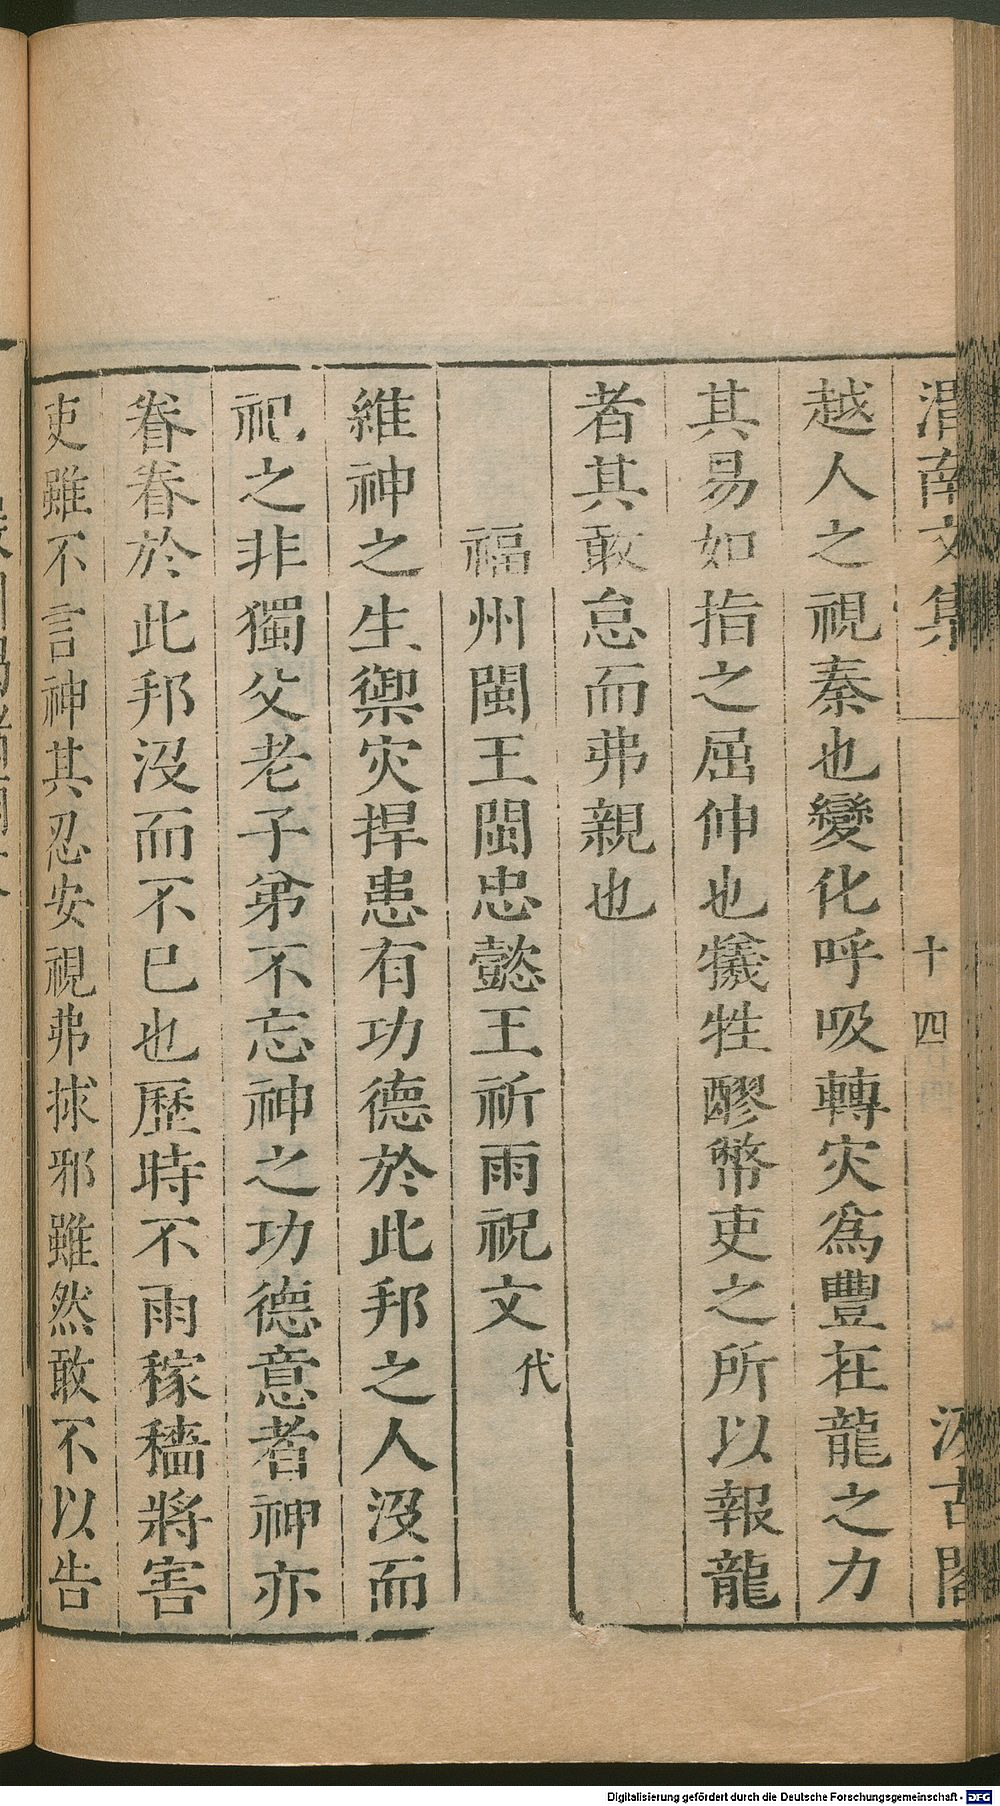 渭南文集 十四 汲古閣
越人之視秦也變化呼吸轉灾爲豐在龍之力
其易如指之屈伸也犧牲醪幣吏之所以報龍
者其敢怠而弗親也
福州閩王閩忠懿王祈雨祝文代
維神之生禦灾捍患有功德於此邦之人沒而
祀之非獨父老子弟不忘神之功德意者神亦
眷眷於此邦沒而不已也歷時不雨稼穡將害
吏雖不言神其忍安視弗捄邪雖然敢不以告
Digitalisierung gefördert durch die Deutsche Forschungsgemeinschaft - DFG